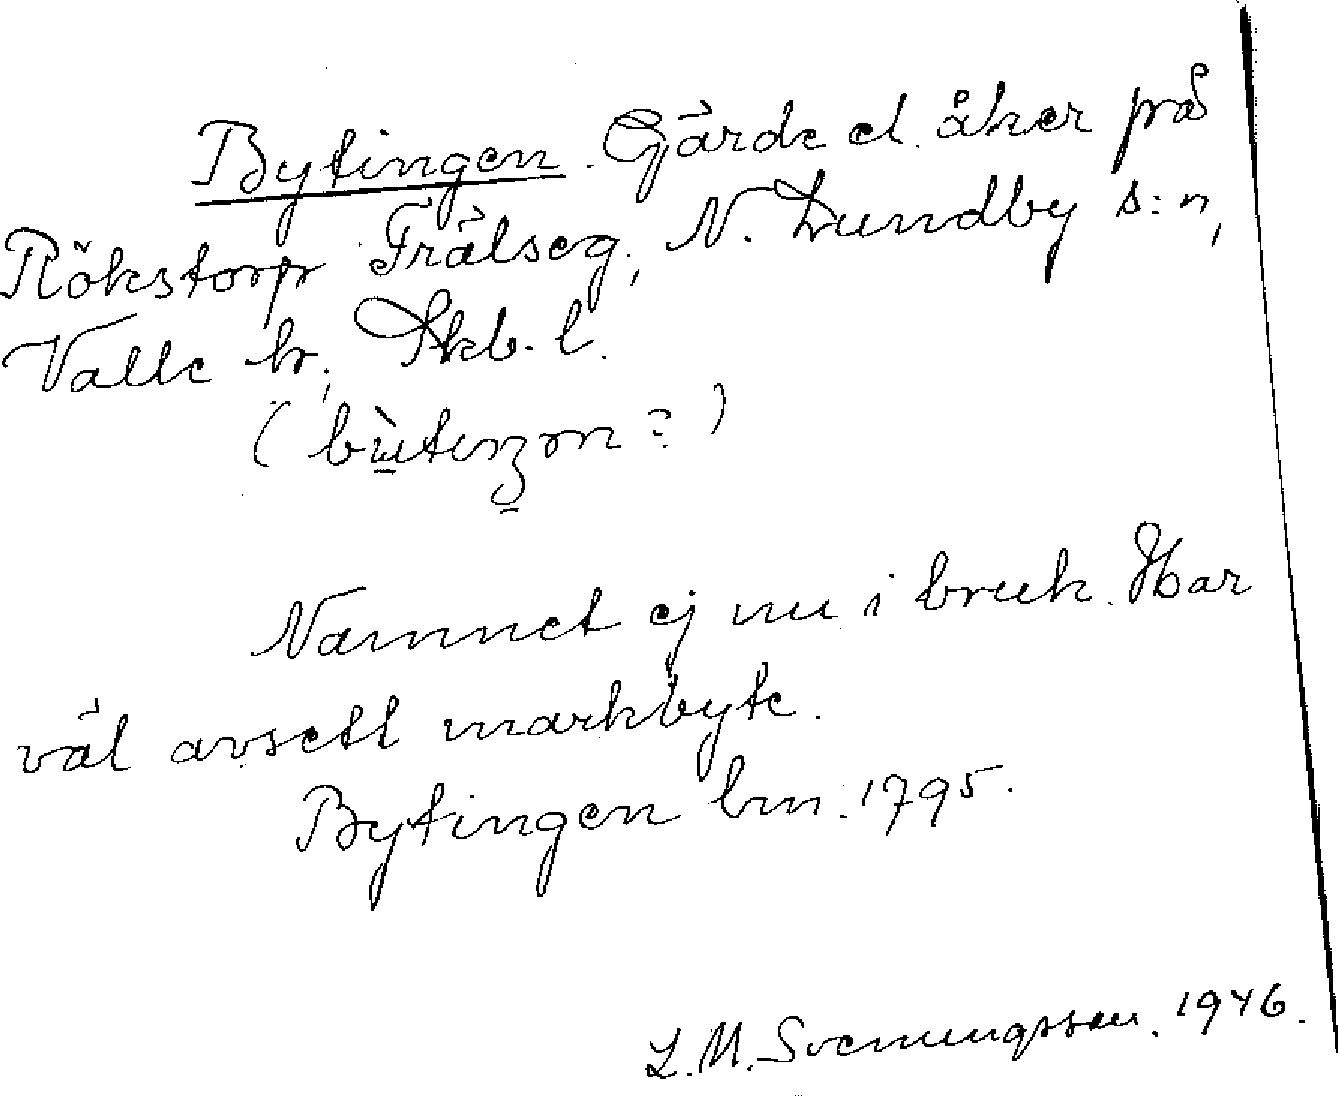 Bytingen. Gärde el. åker på
Rökstorp Frälseg., N. Lundby s:n,
Valle hr, Skb. l.
(                    ?)
Namnet ej nu i bruk. Har
väl avsett markbyte.
Bytingen lm. 1795.
L. M. Svenungsson. 1946.